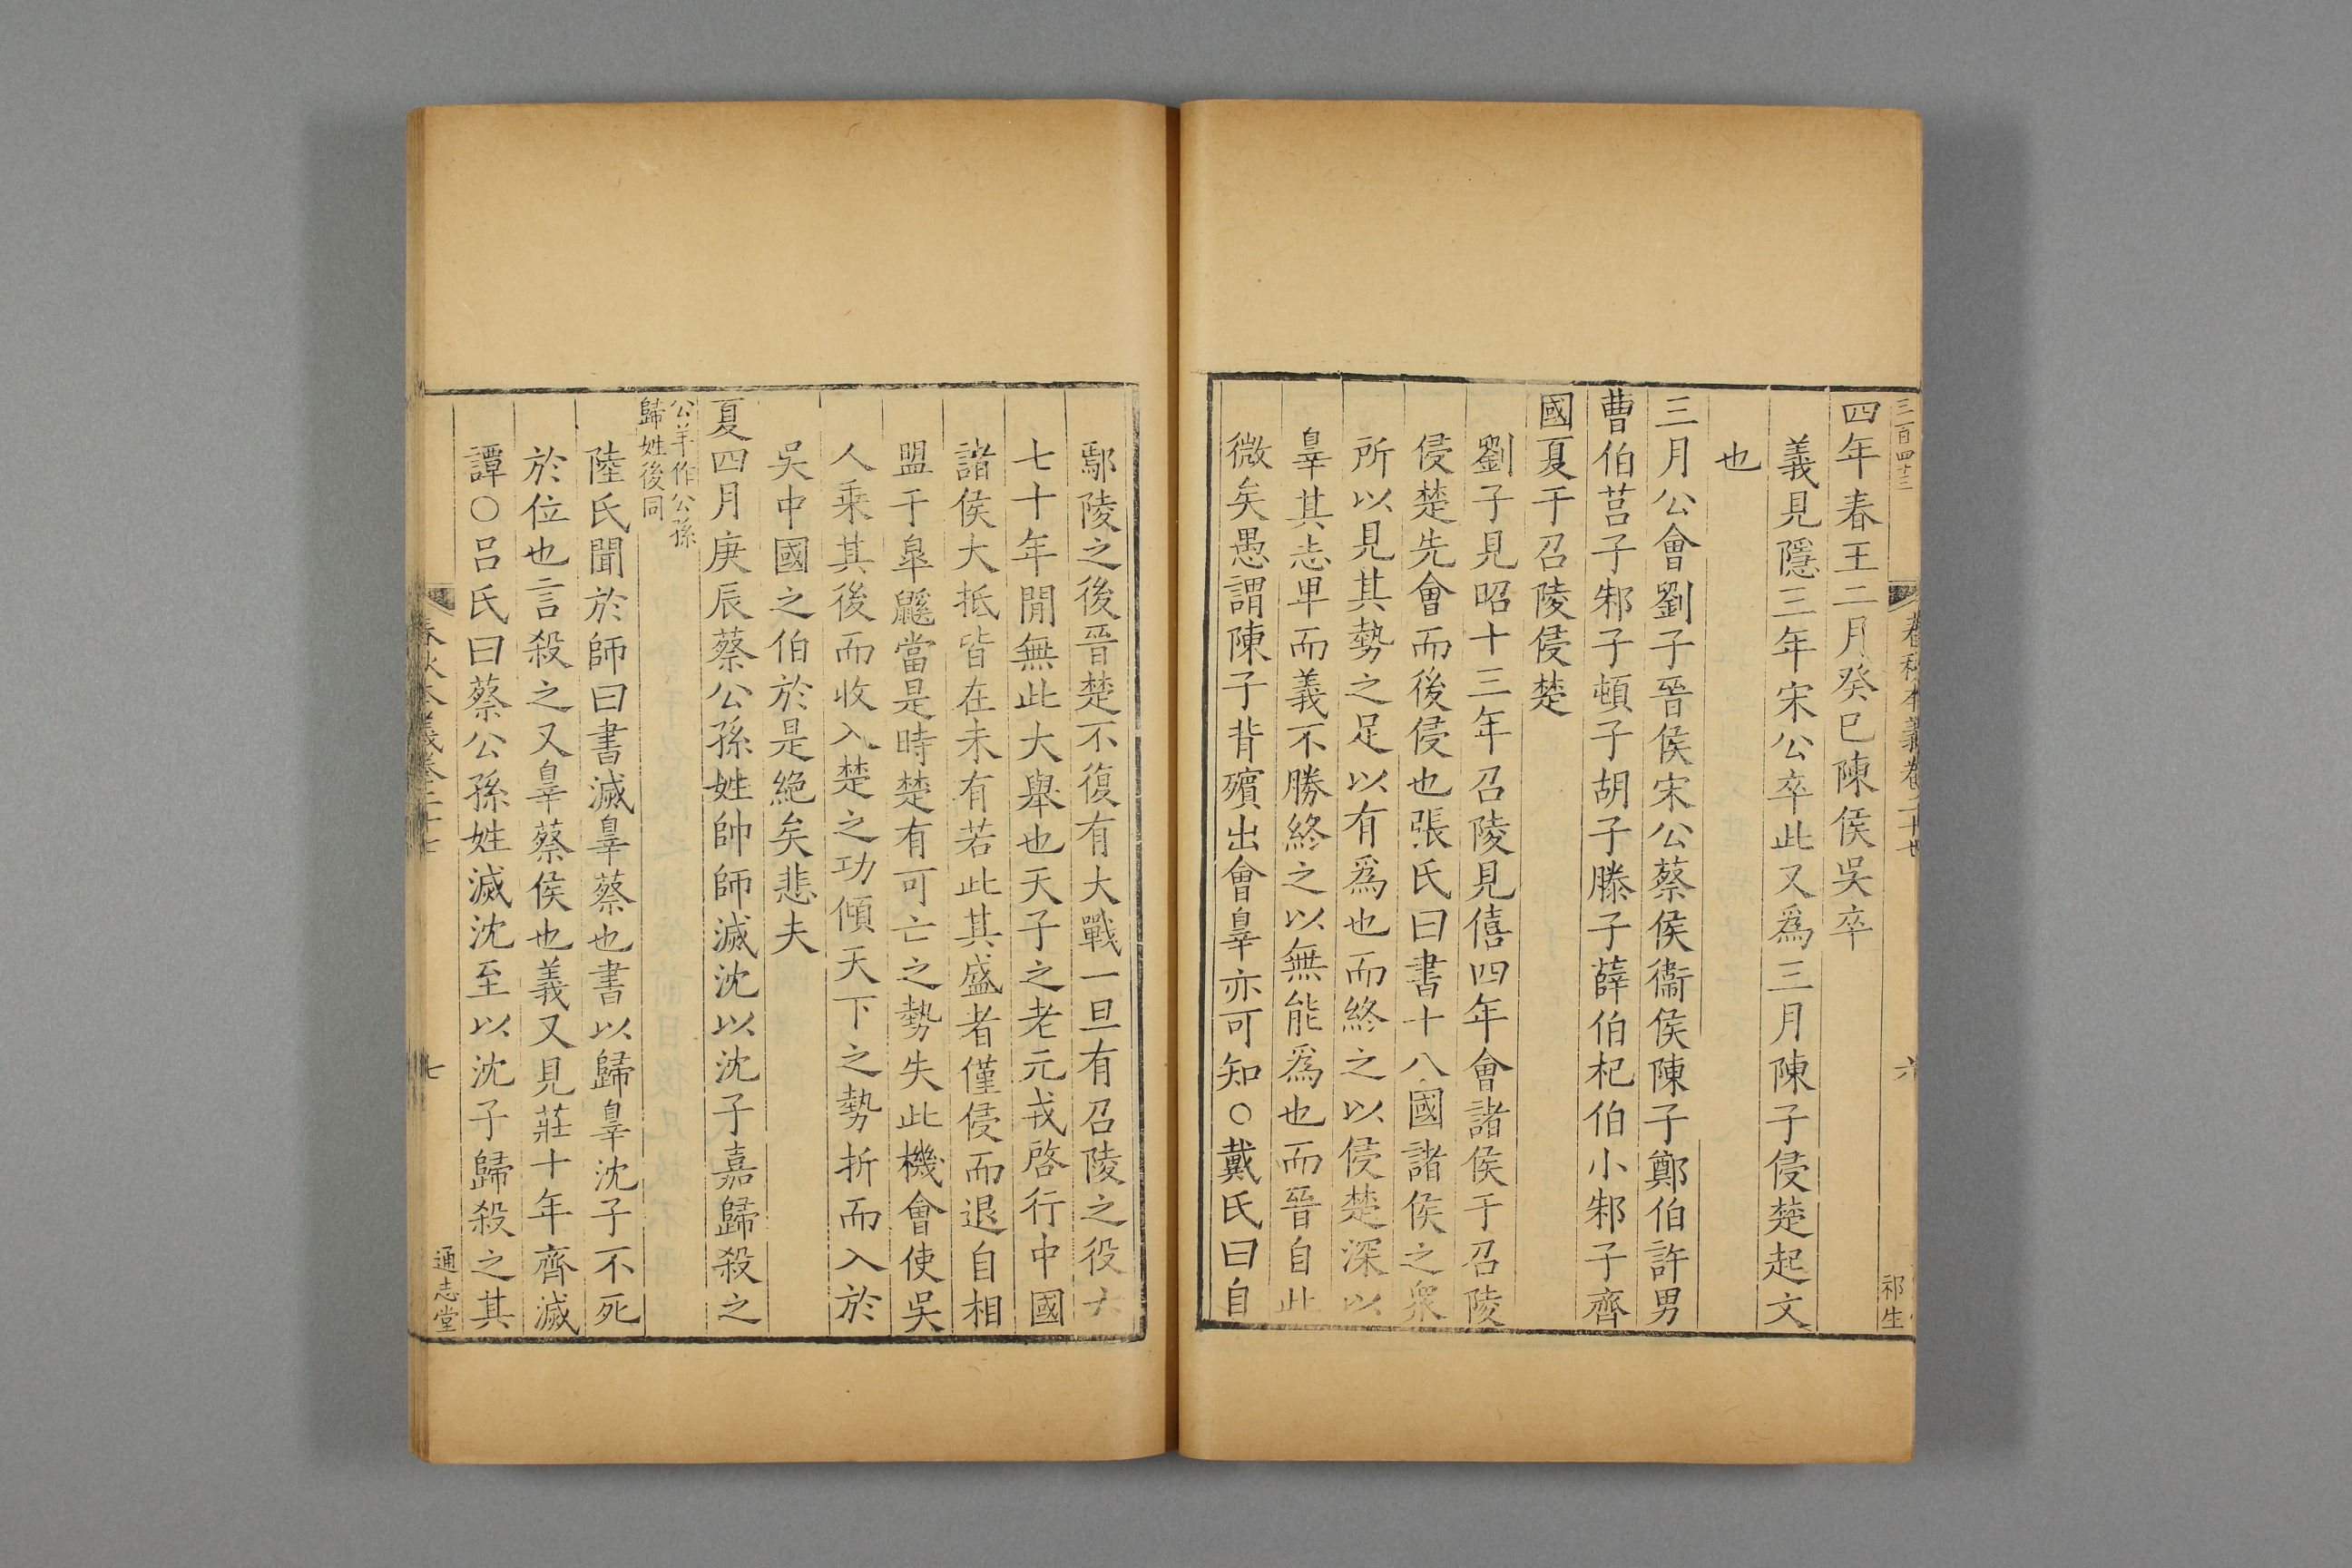 三百四十三
春秋本義卷二十七
六
祁生
四年春王二月癸巳陳侯吳卒
義見隱三年宋公卒此又爲三月陳子侵楚起文
也
三月公會劉子晉侯宋公蔡侯衞侯陳子鄭伯許男
曹伯莒子邾子頓子胡子滕子薛伯杞伯小邾子齊
國夏于召陵侵楚
劉子見昭十三年召陵見僖四年會諸侯于召陵
侵楚先會而後侵也張氏曰書十八國諸侯之衆
所以見其勢之足以有爲也而終之以侵楚深以
辠其志卑而義不勝終之以無能爲也而晉自此
微矣愚謂陳子背殯出會辠亦可知○戴氏曰自
鄢陵之後晉楚不復有大戰一旦有召陵之役大
七十年閒無此大舉也天子之老元戎啓行中國
諸侯大抵皆在未有若此其盛者僅侵而退自相
盟于臯鼬當是時楚有可亡之勢失此機會使吳
人乘其後而收入楚之功傾天下之勢折而入於
吳中國之伯於是絶矣悲夫
夏四月庚辰蔡公孫姓帥師滅沈以沈子嘉歸殺之
公羊作公孫
歸姓後同
陸氏聞於師曰書滅辠蔡也書以歸辠沈子不死
於位也言殺之又辠蔡侯也義又見莊十年齊滅
譚○呂氏曰蔡公孫姓滅沈至以沈子歸殺之其
春秋本義卷二十七
七
通志堂